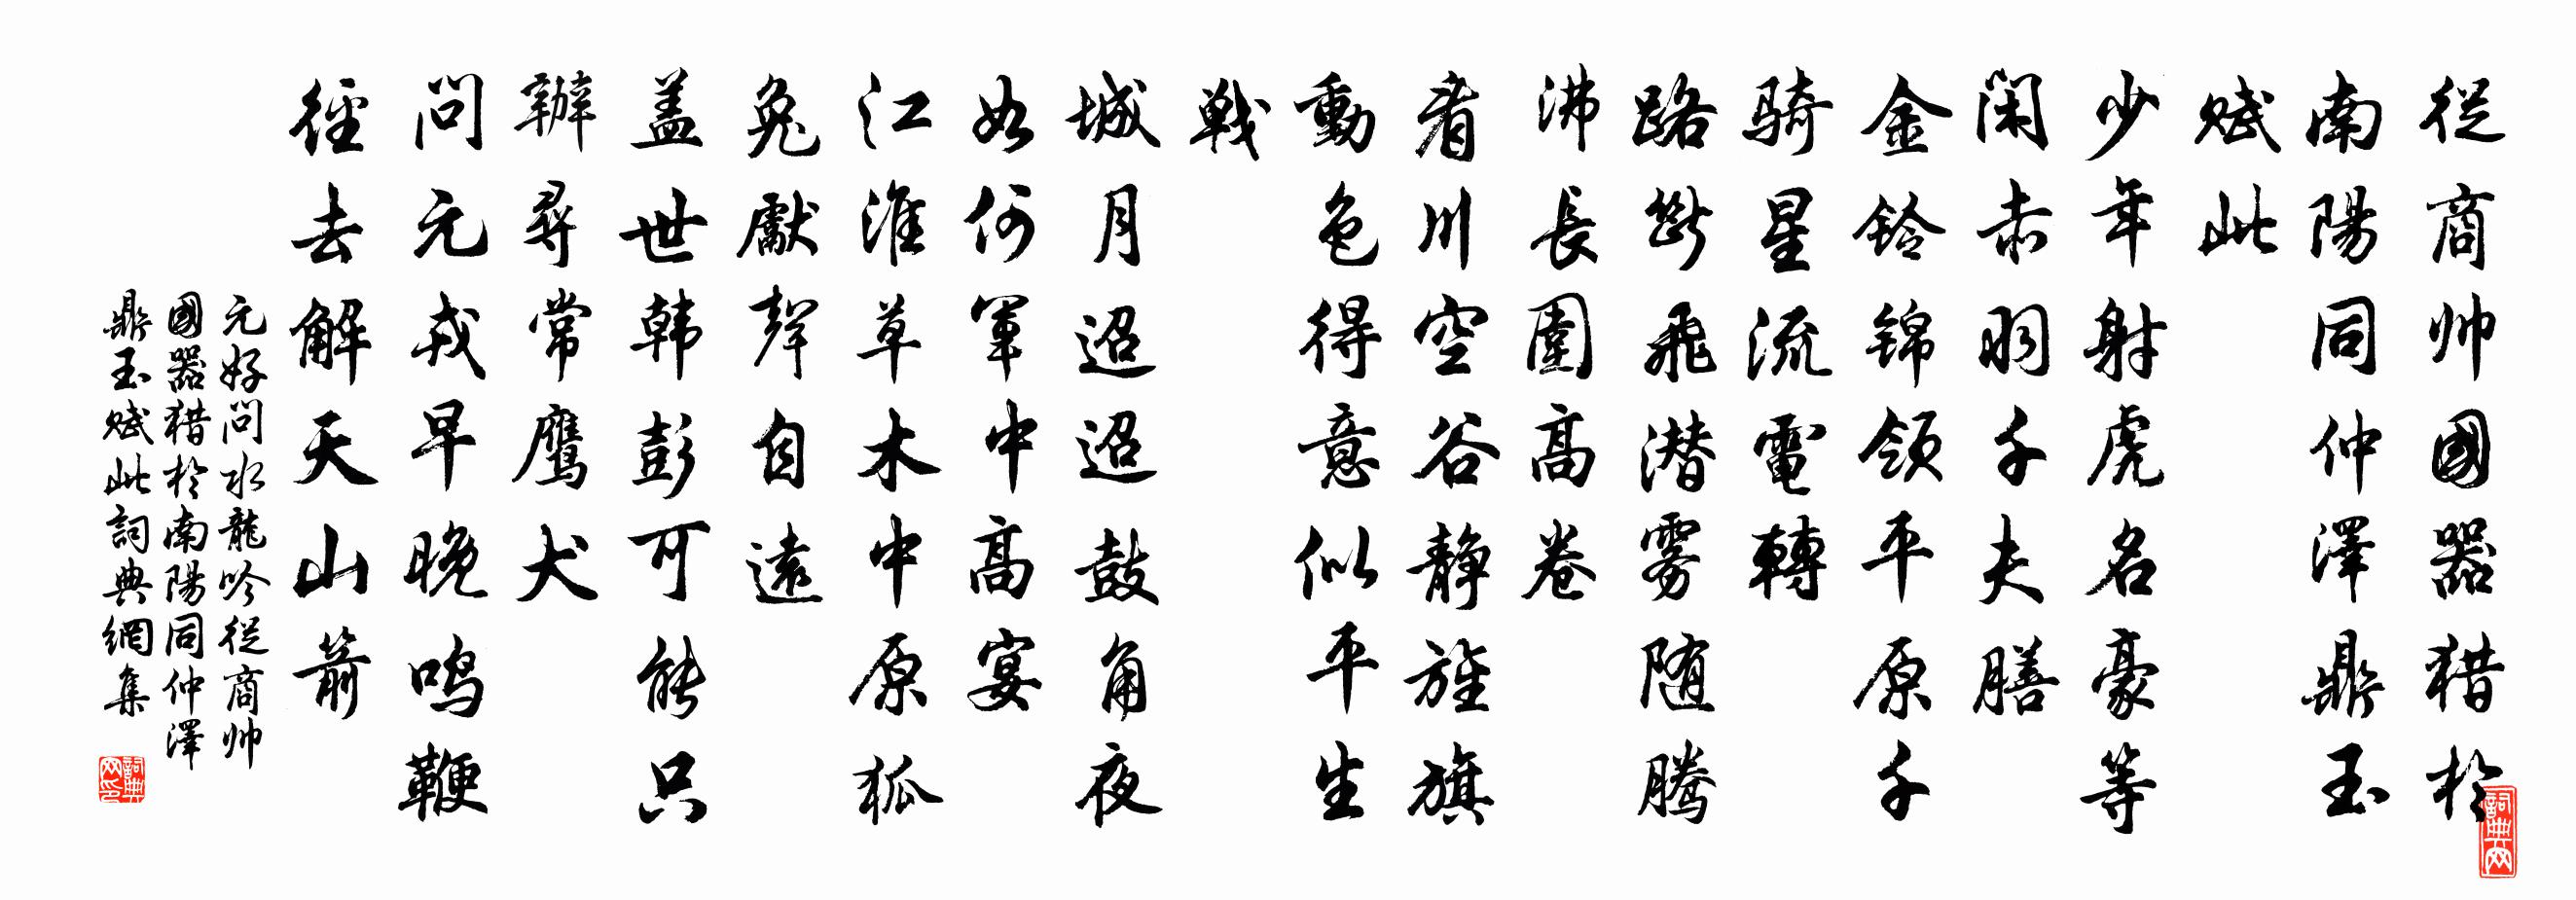 從商帅國器猎於
南陽同仲澤鼎玉
赋此
少年射虎名豪等
闲赤羽千夫膳
金鈴锦领平原千
骑星流電轉
路断飛潜雾随腾
沸長圍高卷
看川空谷静旌旗
動色得意似平生
戦
城月迢迢鼓角夜
如何軍中高宴
江淮草木中原狐
兔獻聲自遠
盖世韩彭可能只
辦尋常鹰犬
問元戎早晚鸣鞭
徑去解天山箭
元好問水龍吟從商帅
國器猎於南陽同仲澤
鼎玉赋此詞典網集
詞典网印
詞典网